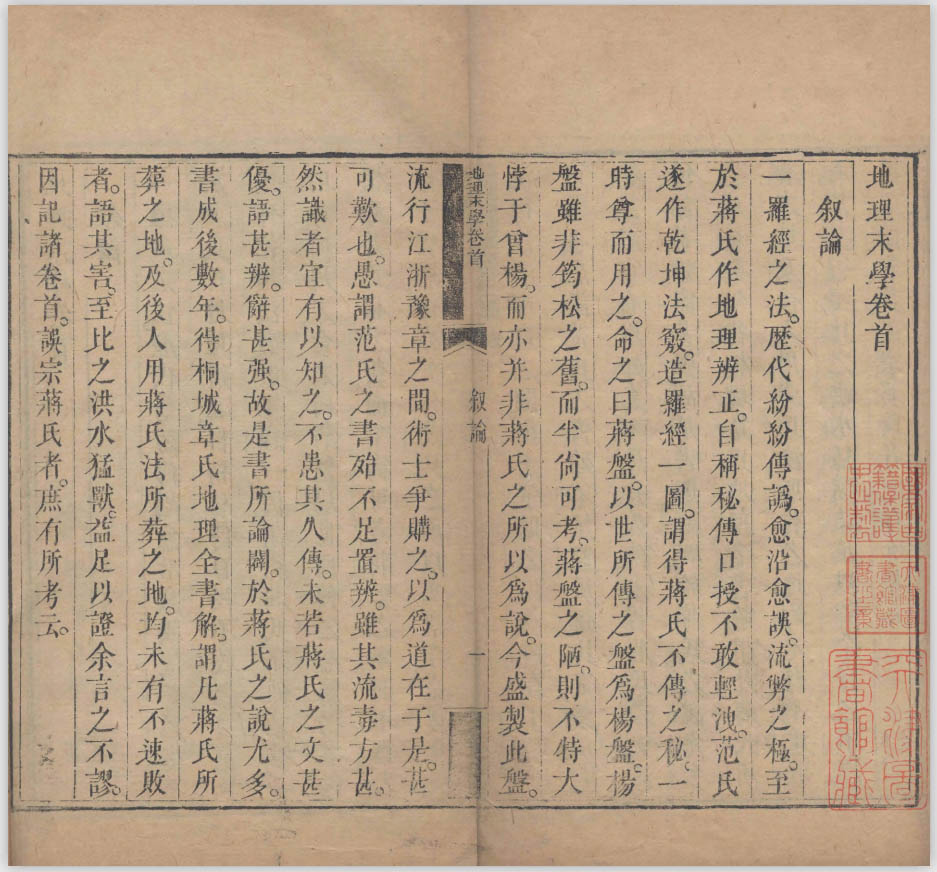 地理末學卷首
叙論
一羅經之法。歷代紛紛傳譌。愈沿愈誤。流弊之極。至
於蔣氏作地理辨正。自稱秘傳口授不敢輕洩。范氏
遂作乾坤法竅。造羅經一圖。謂得蔣氏不傳之秘。一
時尊而用之。命之曰蔣盤。以世所傳之盤爲楊盤。楊
盤雖非筠松之舊。而半尙可考。蔣盤之陋。則不特大
悖于曾楊。而亦并非蔣氏之所以爲說。今盛製此盤。
地理末學卷首
叙論
一
流行江浙豫章之間。術士爭購之。以爲道在于是。甚
可歎也。愚謂范氏之書殆不足置辨。雖其流毒方甚。
然識者宜有以知之。不患其久傳。未若蔣氏之文甚
優。語甚辨。辭甚强。故是書所論闢。於蔣氏之說尤多。
書成後數年。得桐城章氏地理全書解。謂凡蔣氏所
葬之地。及後人用蔣氏法所葬之地。均未有不速敗
者。語其害。至比之洪水猛獸。益足以證余言之不謬。
因記諸卷首。誤宗蔣氏者。庶有所考云。